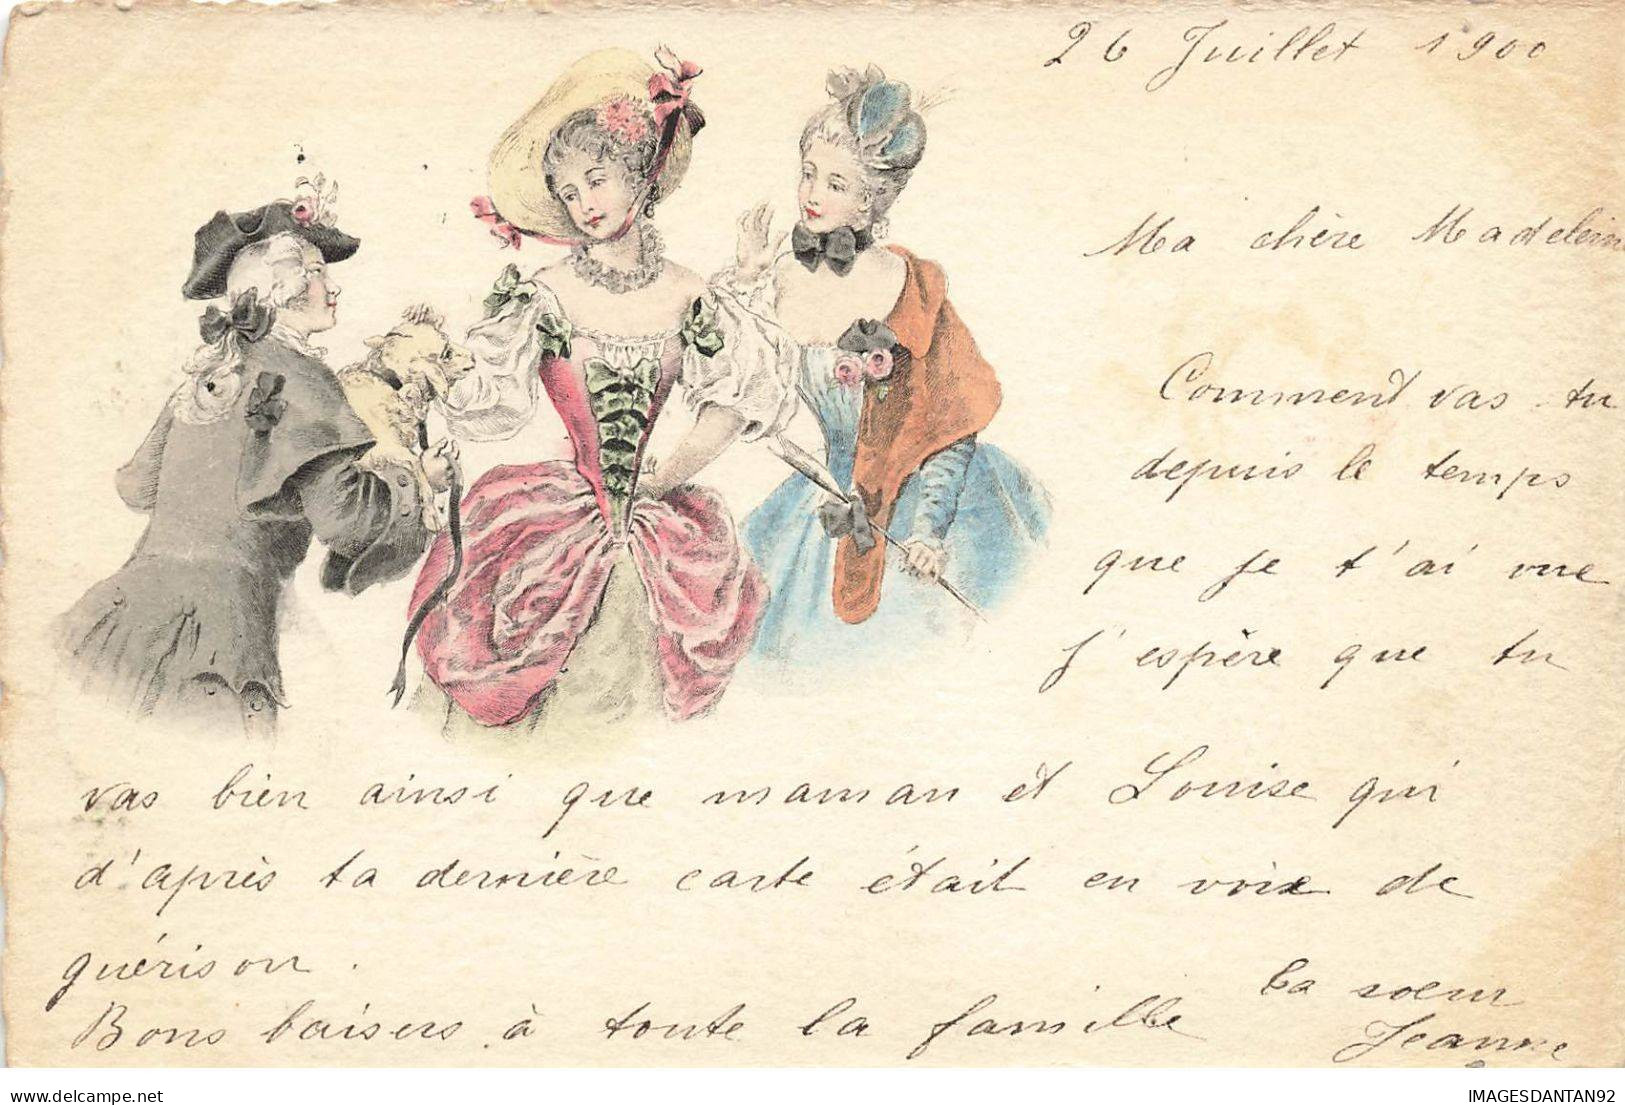 26 Juillet 1900
Ma chère Madeleine
Comment vas tu
depuis le temps
que je t'ai vue
j'espère que tu
vas bien ainsi que maman et Louise qui
d'après ta dernière carte était en voix de
guérison.
Bons baisers à toute la famille
Ta soeur
Jeanne
delcampe.net
IMAGESDANTAN92